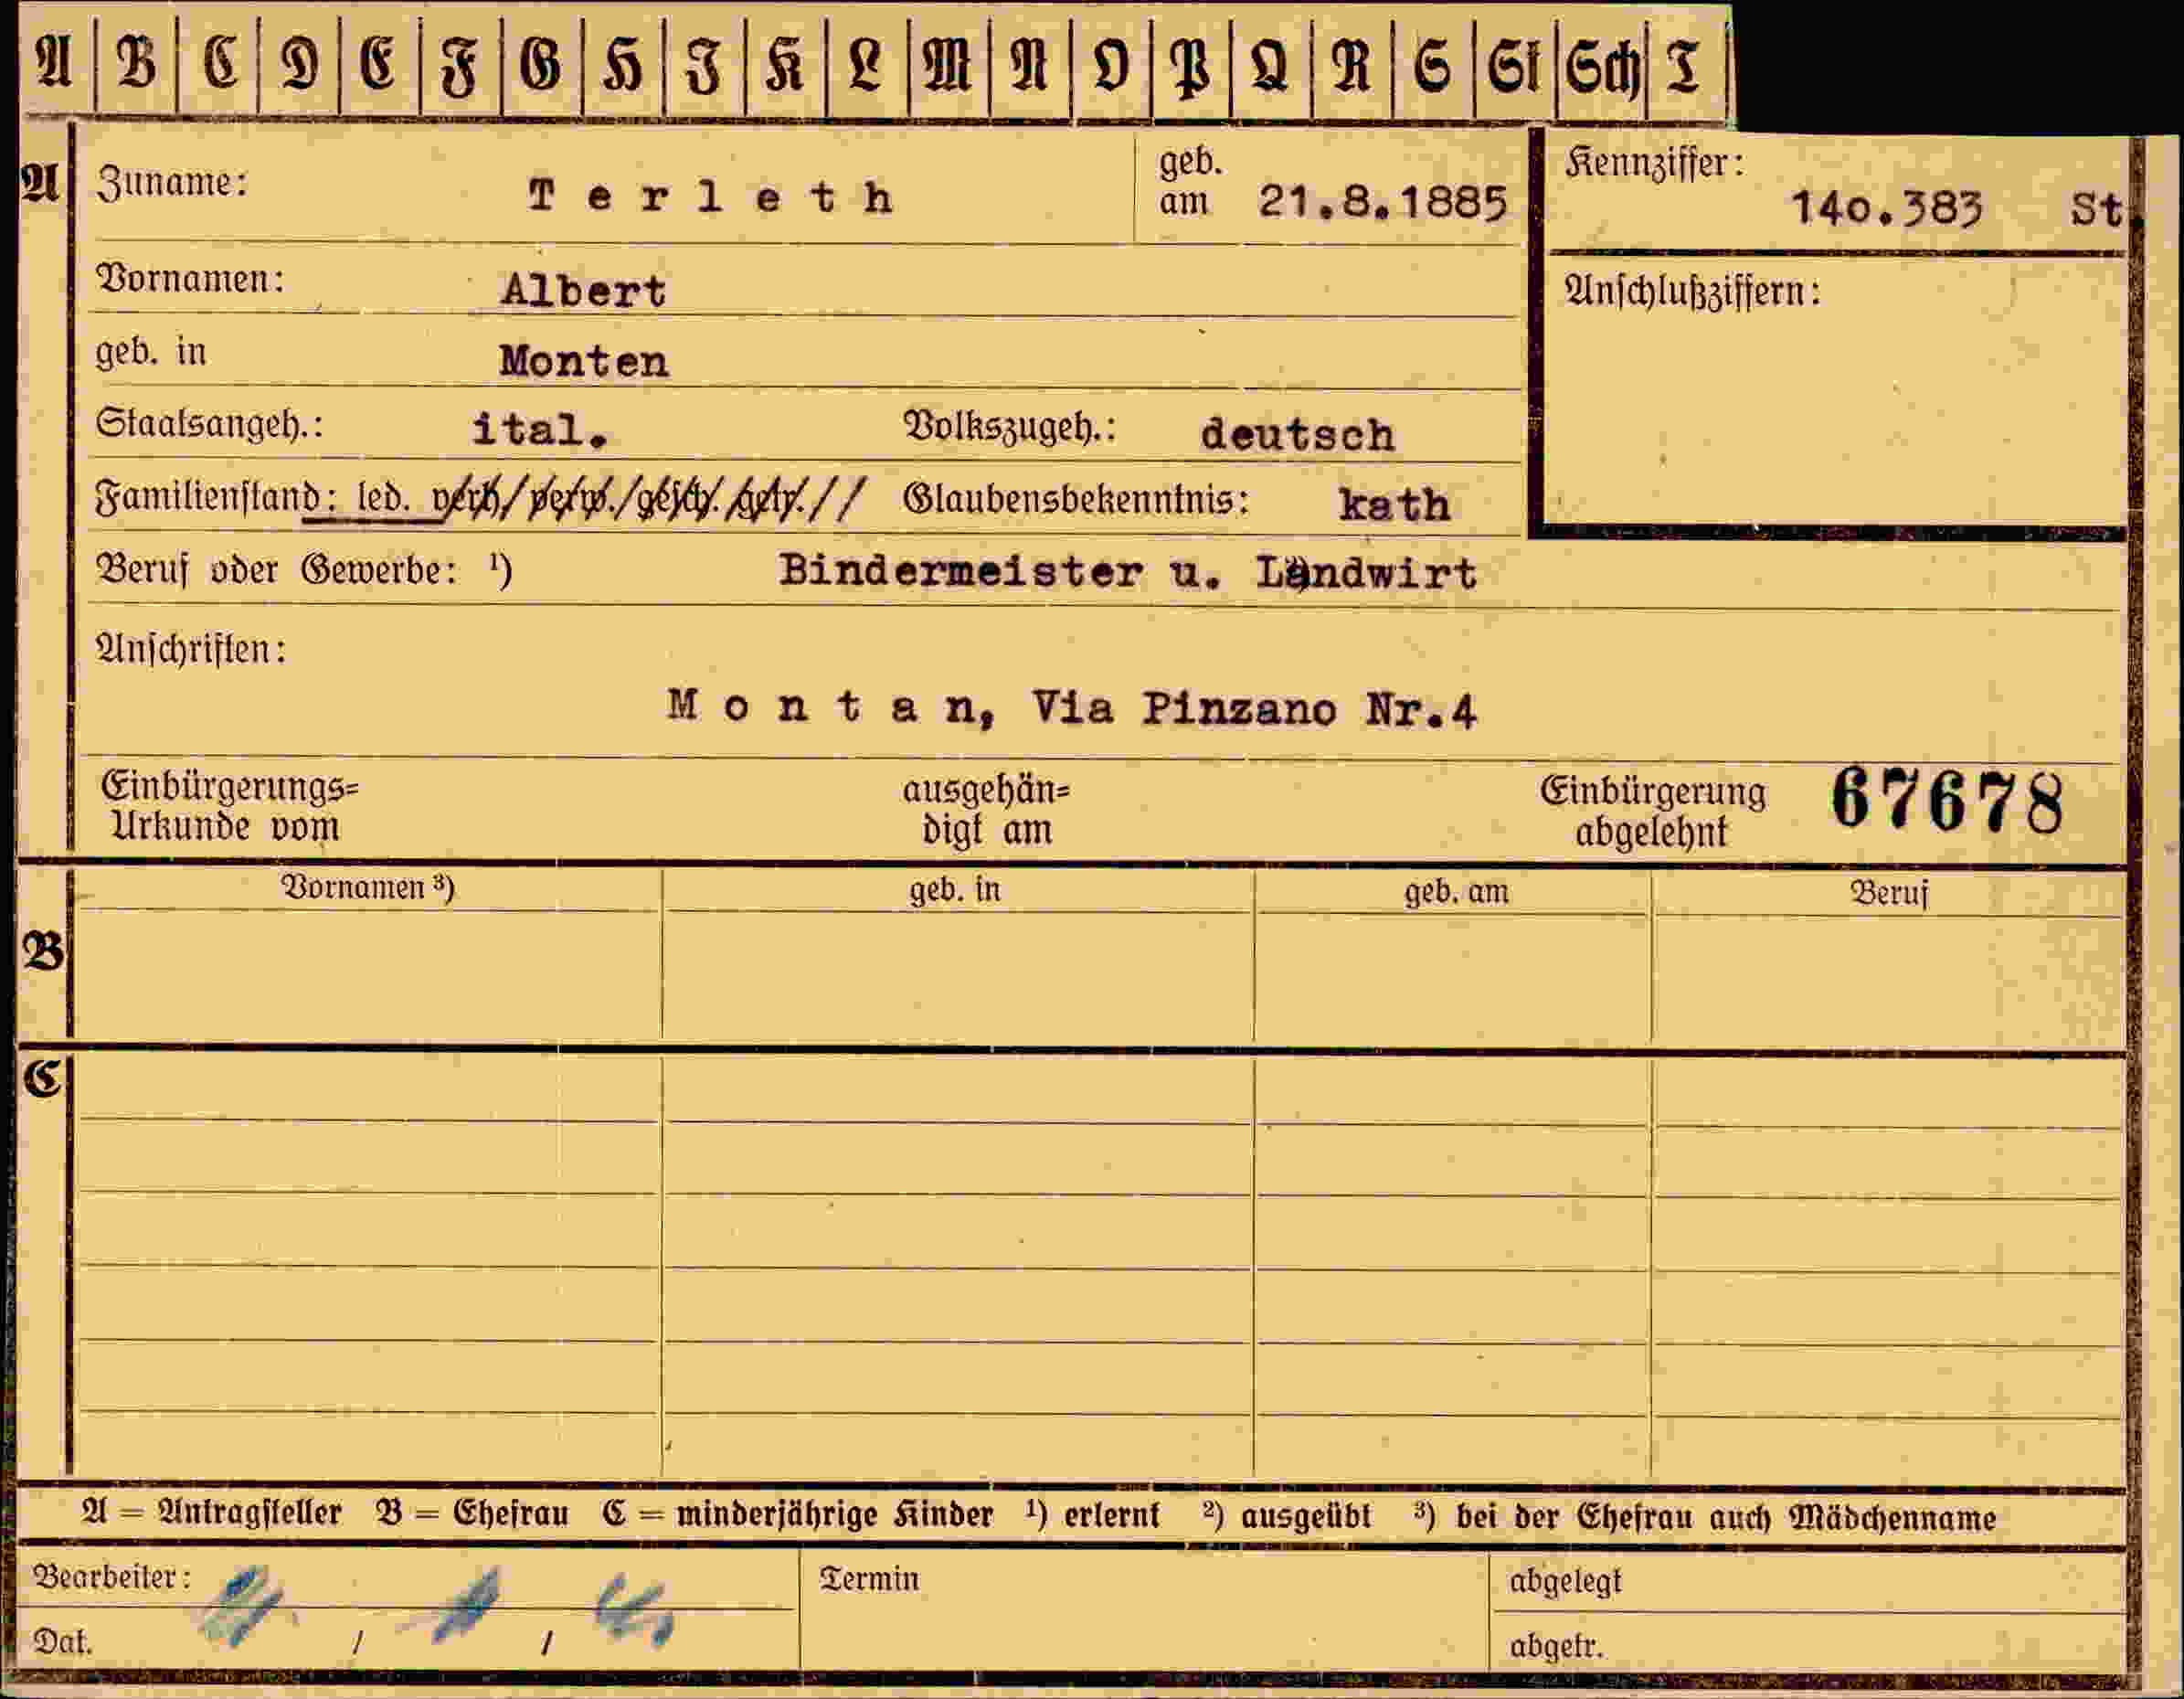 A B C D E F G H I K L M N O P Q R S St Sch T
A Zuname: Terleth geb. am 21.8.1885 Kennziffer: 140.383 St.
Vornamen: Albert Anschlußziffern:
geb. in Monten
Staatsangeh.: ital. Volkszugeh.: deutsch
Familienstand: led. verh/ verw./gesch. getr.// Glaubensbekenntnis: kath
Beruf oder Gewerbe: ¹) Bindermeister u. Landwirt
Anschriften:
Montan, Via Pinzano Nr.4
Einbürgerungs= ausgehän= Einbürgerung 67678
Urkunde vom digt am abgelehnt
Vornamen ³) geb. in geb. am Beruf
B
C
A = Antragsteller B = Ehefrau C = minderjährige Kinder ¹) erlernt ²) ausgeübt ³) bei der Ehefrau auch Mädchenname
Bearbeiter: Termin abgelegt
Dat. / / abgetr.